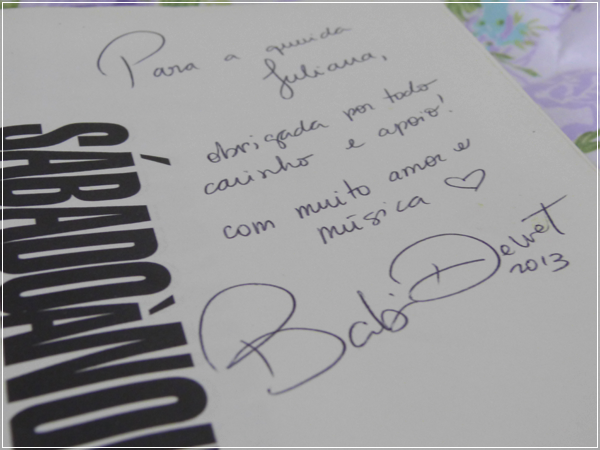 Para a querida
Juliana,
obrigada por todo
carinho e apoio!
com muito amor e
música ♡
Babi Dewet
2013
SÁBADO À NOI